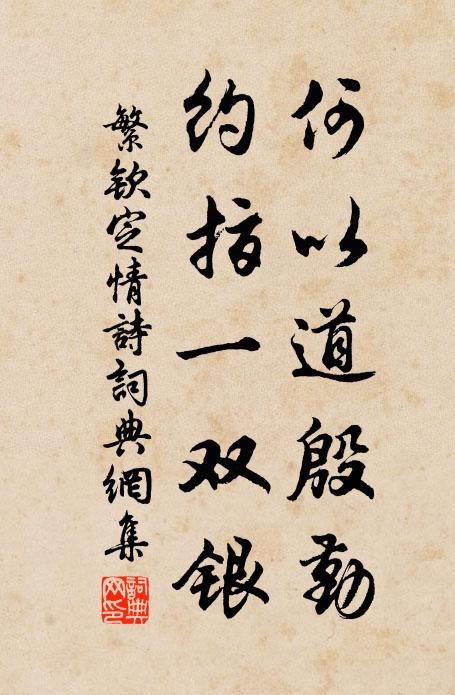 何以道殷勤
约指一双银
繁钦定情詩詞典網集
詞典网印